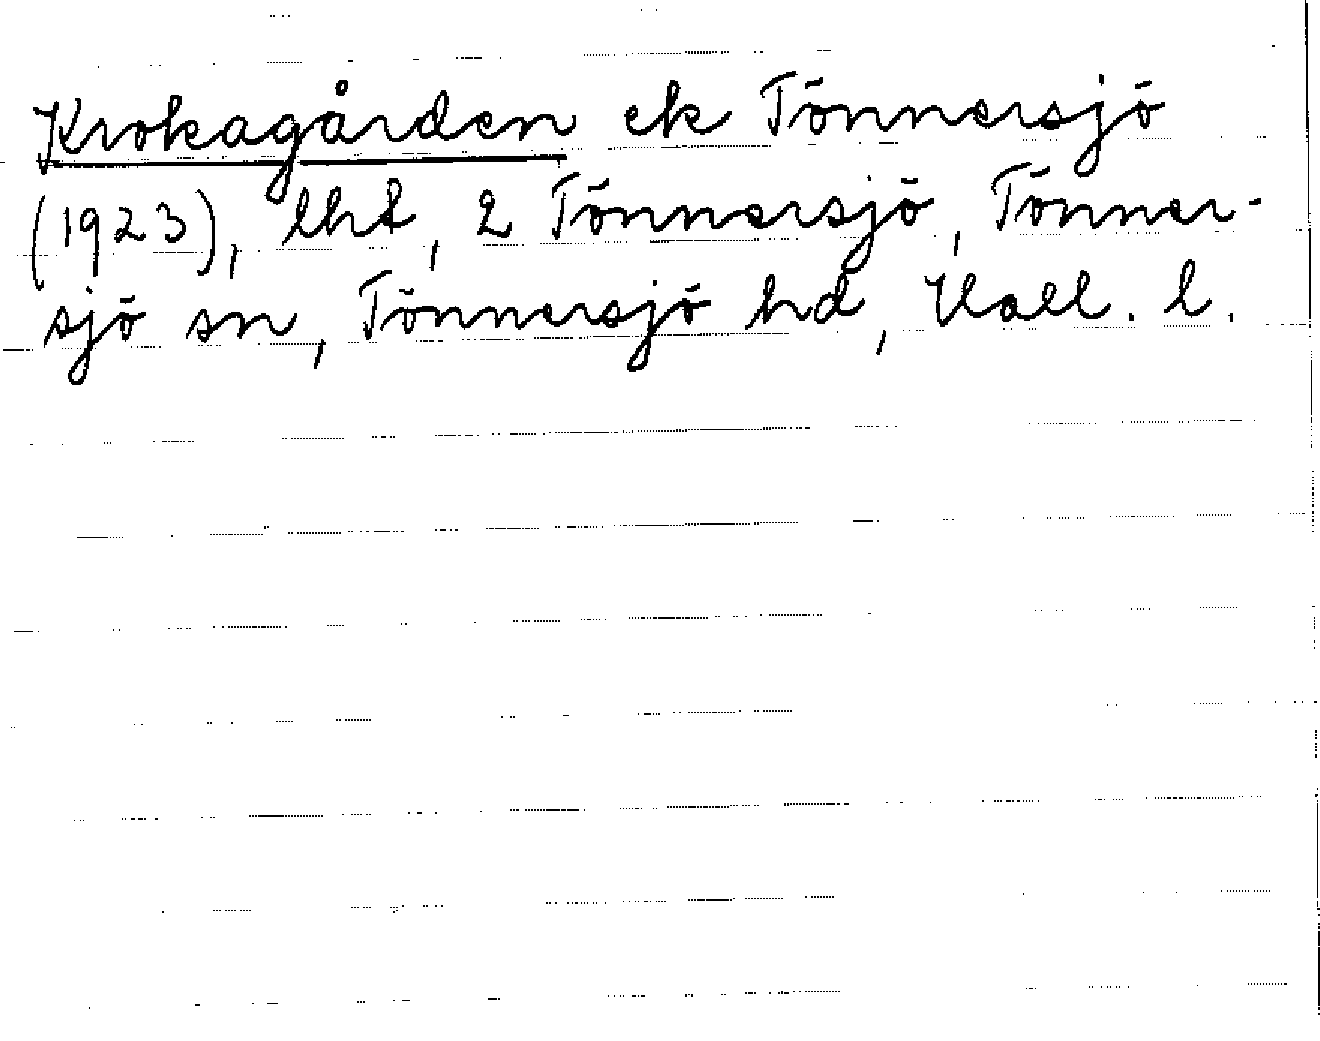 Krokagården ek Tönnersjö
(1923), lht, 2 Tönnersjö, Tönner-
sjö sn, Tönnersjö hd, Hall. l.